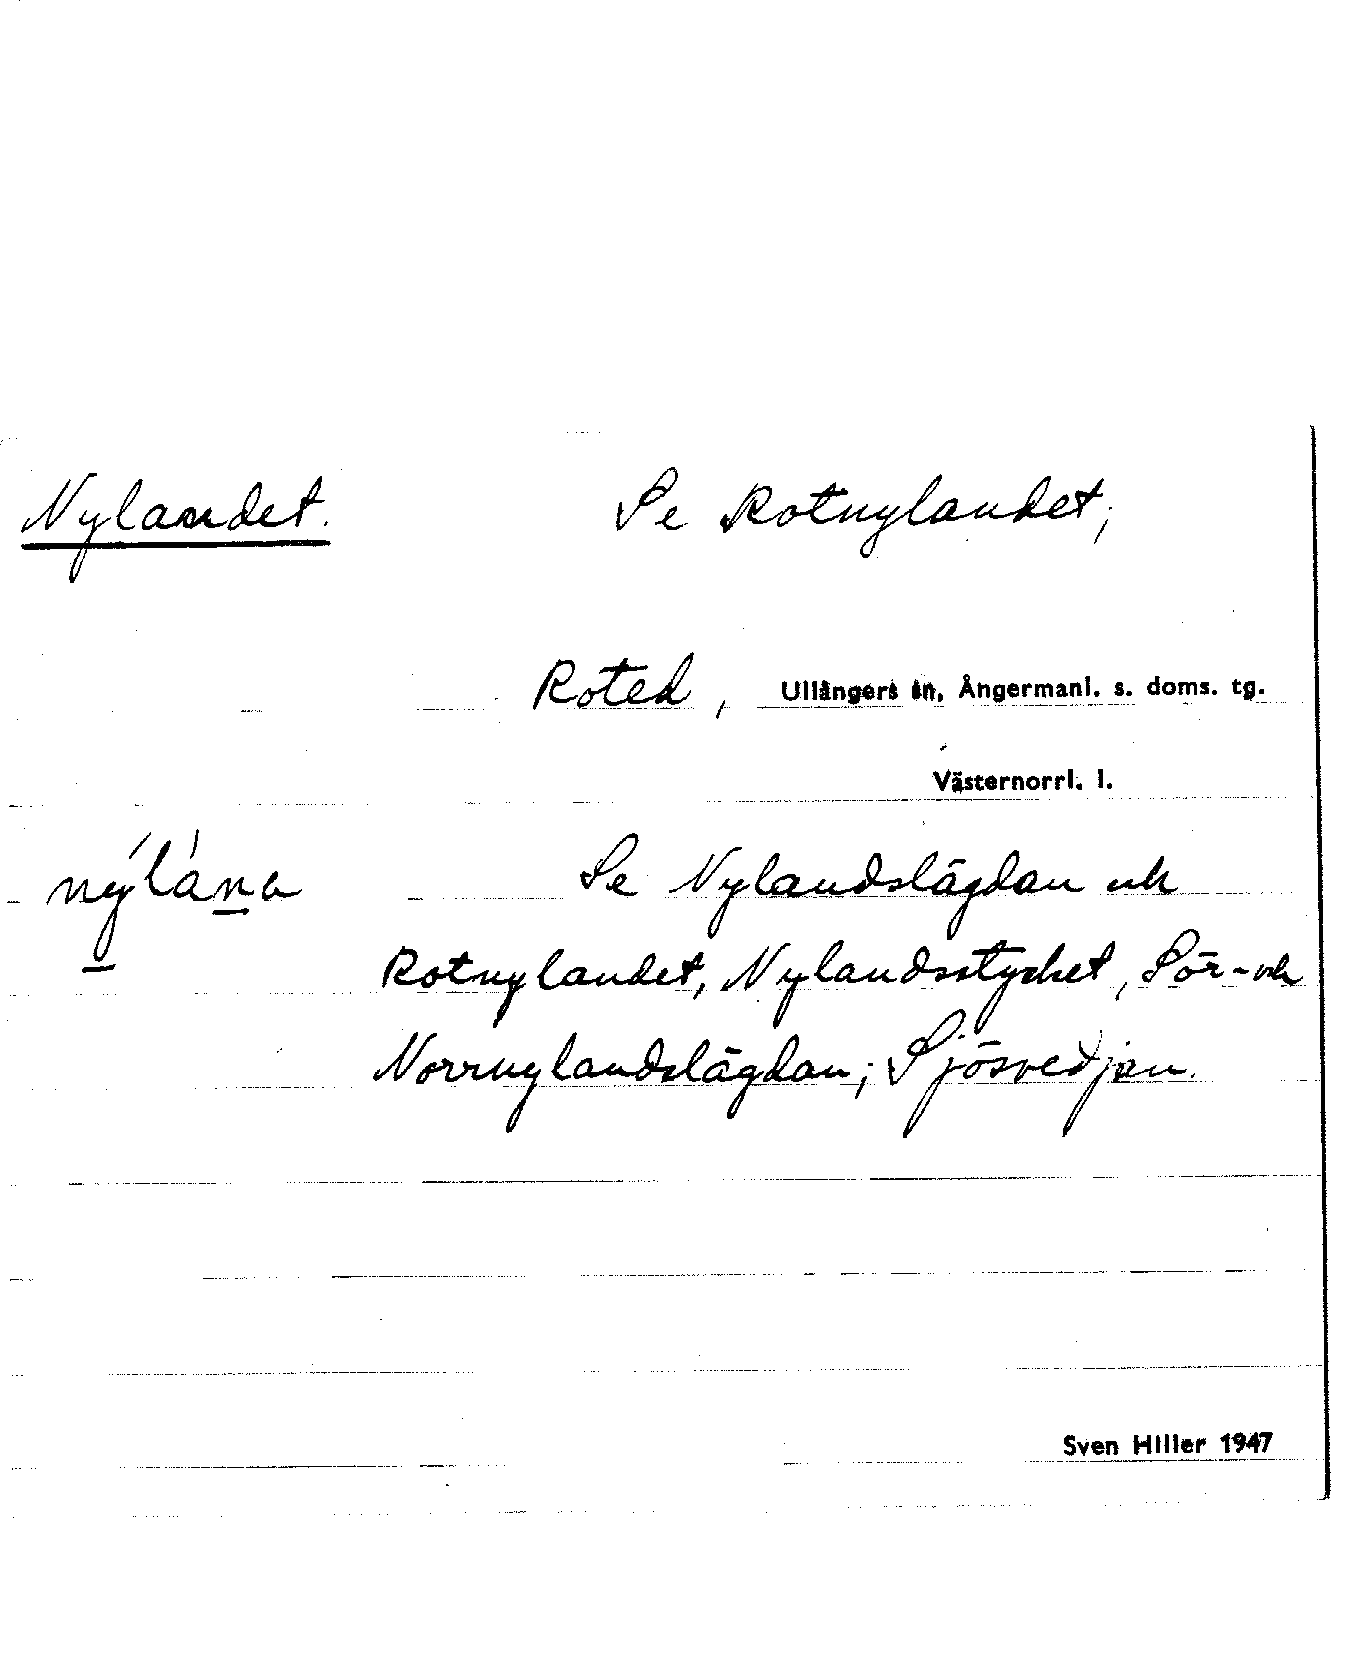 Nylandet. Se Rotnylandet,
Roted, Ullångers sn, Ångermanl. s. doms. tg.
Västernorrl. l.
nýlána Se Nylandslägdan och
Rotnylandet, Nylandsstycket, Sör- och
Norrnylandslägdan; Sjösvedjan.
Sven Hiller 1947